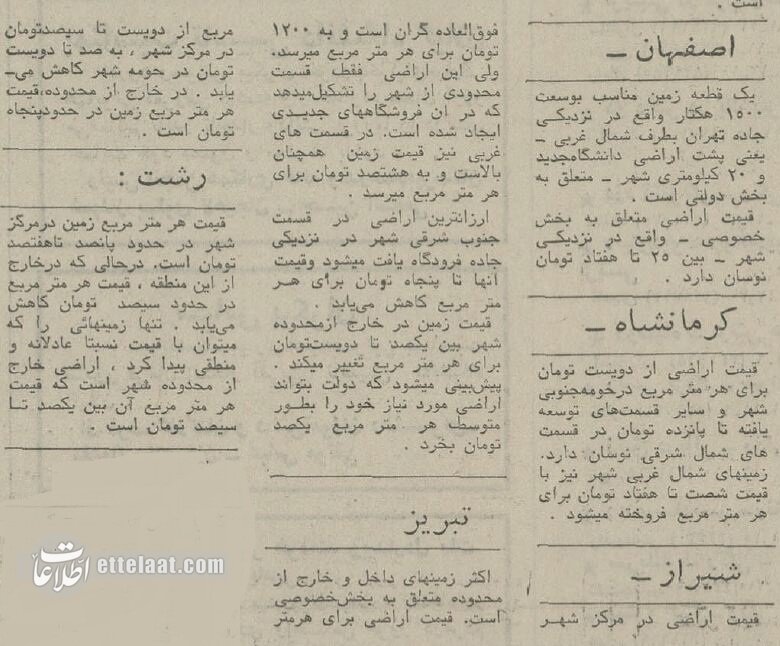 است .
اصفهان ـ
یک قطعه زمین مناسب بوسعت
۱۵۰۰ هکتار واقع در نزدیکی
جاده تهران بطرف شمال غربی ـ
یعنی پشت اراضی دانشگاه‌جدید
و ۲۰ کیلومتری شهر ـ متعلق به
بخش دولتی است .
قیمت اراضی متعلق به بخش
خصوصی ـ واقع در نزدیکی
شهر ـ بین ۲۵ تا هفتاد تومان
نوسان دارد .
کرمانشاه ـ
قیمت اراضی از دویست تومان
برای هر متر مربع درحومه‌جنوبی
شهر و سایر قسمت‌های توسعه
یافته تا پانزده تومان در قسمت
های شمال شرقی نوسان دارد.
زمینهای شمال غربی شهر نیز با
قیمت شصت تا هفتاد تومان برای
هر متر مربع فروخته میشود .
شیراز ـ
قیمت اراضی در مرکز شهر
فوق‌العاده گران است و به ۱۲۰۰
تومان برای هر متر مربع میرسد.
ولی این اراضی فقط قسمت
محدودی از شهر را تشکیل‌میدهد
که در ان فروشگاههای جدیدی
ایجاد شده است. در قسمت های
غربی نیز قیمت زمین همچنان
بالاست و به هشتصد تومان برای
هر متر مربع میرسد .
ارزانترین اراضی در قسمت
جنوب شرقی شهر در نزدیکی
جاده فرودگاه یافت میشود وقیمت
آنها تا پنجاه تومان برای هر
متر مربع کاهش می‌یابد .
قیمت زمین در خارج ازمحدوده
شهر بین یکصد تا دویست‌تومان
برای هر متر مربع تغییر میکند .
پیش‌بینی میشود که دولت بتواند
اراضی مورد نیاز خود را بطور
متوسط هر متر مربع یکصد
تومان بخرد .
تبریز
اکثر زمینهای داخل و خارج از
محدوده متعلق به بخش‌خصوصی
است. قیمت اراضی برای هرمتر
مربع از دویست تا سیصدتومان
در مرکز شهر ، به صد تا دویست
تومان در حومه شهر کاهش می‌ـ
یابد . در خارج از محدوده،قیمت
هر متر مربع زمین در حدودپنجاه
تومان است .
رشت :
قیمت هر متر مربع زمین درمرکز
شهر در حدود پانصد تاهفتصد
تومان است. درحالی که درخارج
از این منطقه ، قیمت هر متر مربع
در حدود سیصد تومان کاهش
می‌یابد . تنها زمینهائی را که
میتوان با قیمت نسبتا عادلانه و
منطقی پیدا کرد ، اراضی خارج
از محدوده شهر است که قیمت
هر متر مربع آن بین یکصد تا
سیصد تومان است .
اطلاعات ettelaat.com